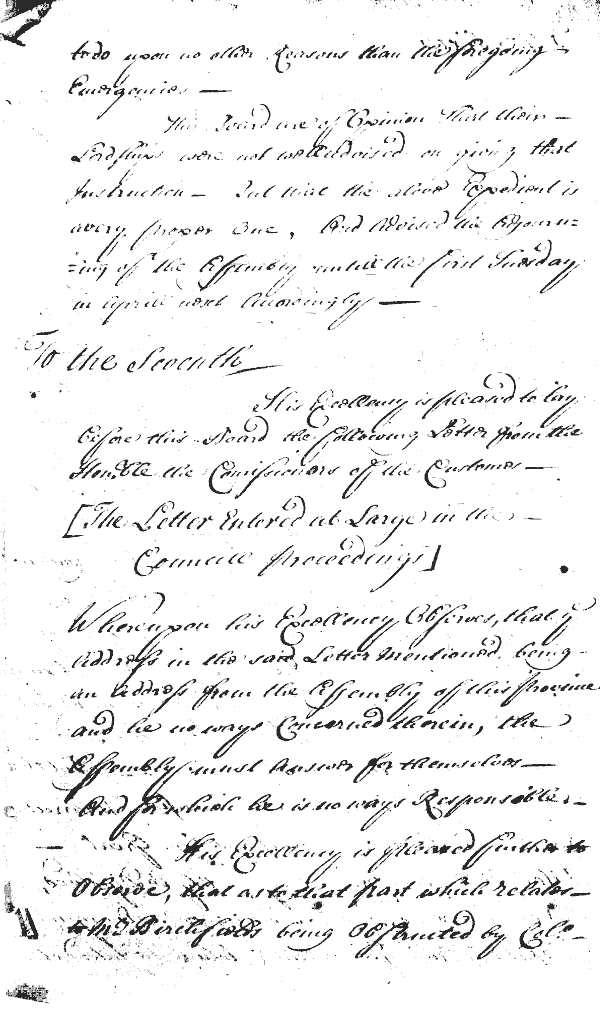 to do upon no other Reasons than the foregoing
Emergencies —
This Board are of Opinion that their —
Lordships were not well advised on giving that
Instruction — But that the above Expedient is
a very proper One, And advised the Adjourn=
=ing of the Assembly untill the first Tuesday
in Aprill next Accordingly —
To the Seventh —
His Excellency is pleased to lay
before this Board the following Letter from the
Honoble the Comissioners of the Customes —
[The Letter Entered at Large in the —
Councill proceedings]
Whereupon his Excellency Observes, that ye
Address in the said Letter Mentioned being
an Address from the Assembly of this Province
and he no ways Concerned therein, the
Assembly must Answer for themselves —
And for which he is no ways Responsible —
His Excellency is pleased further to
Observe, that as to that part which relates —
to Mr Birchfields being Obstructed by Colo —